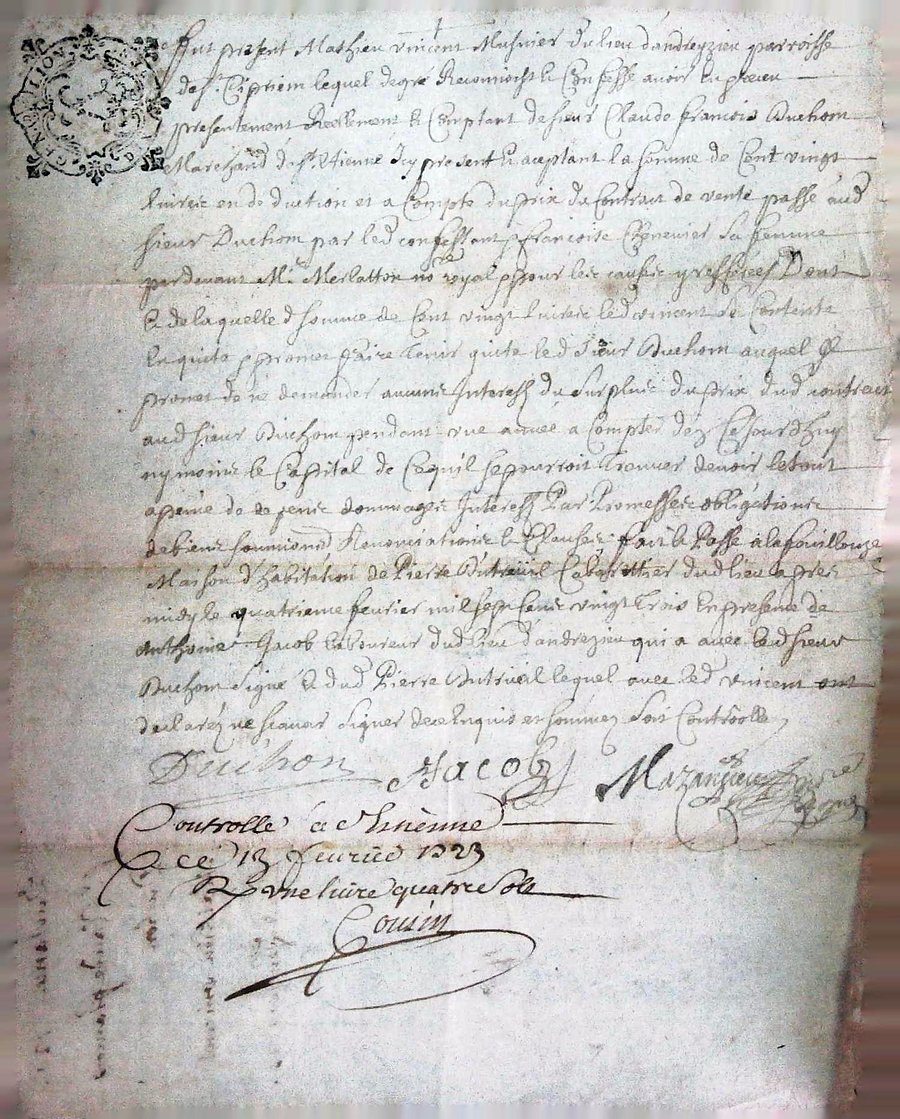 GEN DE LION
Fut present Mathieu vincent Musnier du lieu dandreyzieu parroisse
de st Cipriem lequel de gré Reconnoist & Confesse avoir Eu & receu
presentement Reellement & Comptant de sieur Claude francois Duchom
Marchand de st Etienne Icy present & aceptant la somme de Cent vingt
livres en de duction et a Compte du prix du Contrat de vente passé aud
sieur Duchom par led confessant & francoise Chenevier sa femme
pardevant Me Merlatton no royal & pour les causes y Dont
& de laquelle d somme de Cent vingt livres led vincent se Contente
En quite & promet faire tenir quite led sieur Duchom auquel Il
promet de ne demander aucuns Interest du surplus du prix dud contract
aud sieur Duchom pendant une année a Compter de Ce Jourdhuy
ny moins le Capital de Ce quil se pourroit trouver devoir le tout
a peine de de pens dommages Interest Par Promesses obligations
de biens soumions Renonciations & Clauses fait & Passé a la fouillouze
Maison d'habitation de Pierre Dutreüil Cabarettier dud lieu apres
midy le quatrieme fevrier mil sept cens vingt trois En presence de
Anthoine Jacob laboureur dud lieu d'andrezieu qui a avec led sieur
Duchom signé & dud Pierre Dutreuil lequel avec led vincent ont
declaré ne scavoir signer de ce Enquis et sommez soit Controolle
Duchon AJacob Mazanzieu
Controllé a St Etienne
ce 13 fevrier 1723
R une livre quatre sols
Cousin